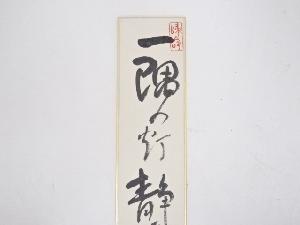 一隅の灯静